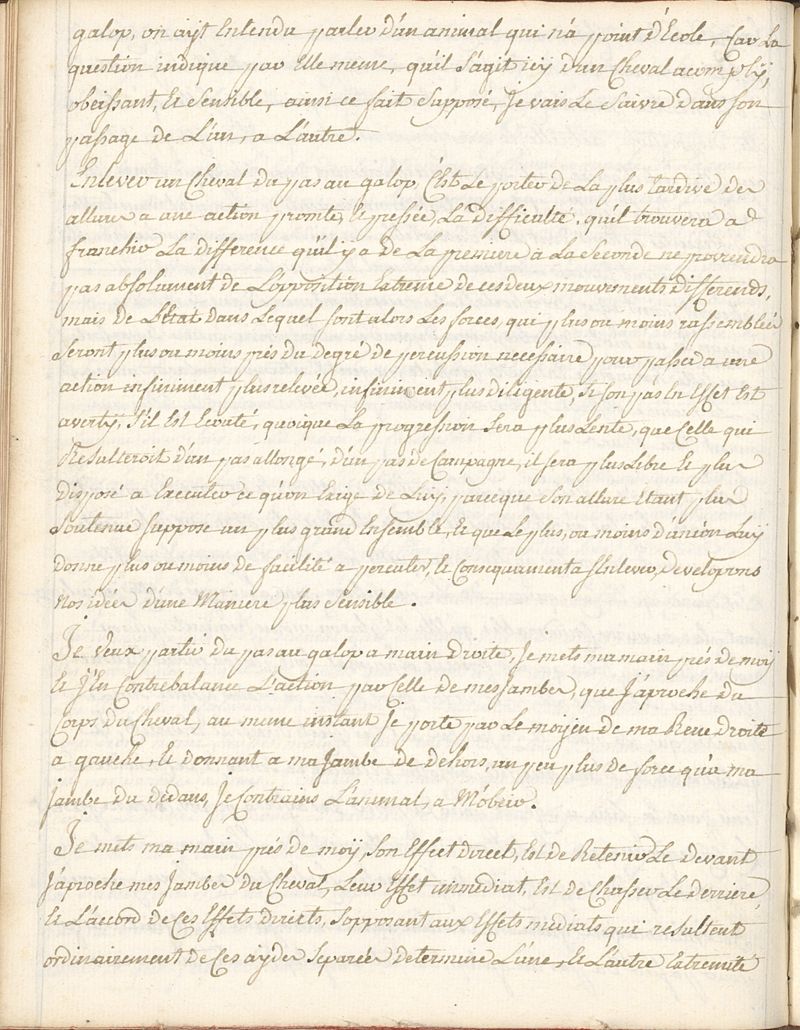 galop, on ayt Entendu parler d'un animal qui n'a point d'Ecole, Car La
question indique par Elle meme, quil s'agit icy d'un Cheval acomply,
obeissant, Et Sensible, ainsi ce fait Supposé, Je vais Le Suivre dans son
passage de L'un, a L'autre.
Enlever un Cheval du pas au galop, C'est Le porter de La plus tardive des
allures a une action promte, Et pressée, La difficulté, qu'il trouvera a
franchir La difference qu'il y a de La premiere à La Seconde ne proviendra
pas absolument de L'opposition Extreme de ces deux mouvements differends,
mais de L'Etat dans Lequel sont alors Les forces, qui plus ou moins rassemblées
Seront plus ou moins prés du degré de percussion necessaire pour passer a une
action infiniment plus relevée, infiniment plus diligente, Si son pas En Effet Est
averty, S'il Est Ecouté, quoique La progression Sera plus Lente, que Celle qui
Resulteroit d'un pas allongé, d'un pas de Campagne, il sera plus Libre Et plus
disposé a Executer ce qu'on Exige de Luy, parceque Son allure Etant plus
Soutenue Suppose un plus grand Ensemble, Et que Le plus, ou moins d'union Luy
donne plus ou moins de facilité a percuter, Et Consequament a s'Enlever, developons
nos idées d'une Maniere plus Sensible.
Je veux partir du pas au galop a main Droite, Je mets ma main prés de moy
Et J'En Contrebalance L'action par Celle de mes Jambes, que J'aproche du
Corps du Cheval, au meme instant Je porte par Le moyen de ma Rene Droite
a gauche, Et donnant a ma Jambe de dehors, un peu plus de force qu'a ma
Jambe du dedans, Je Contrains L'animal, a M'obeir.
Je mets ma main prés de moy, Son Effect direct, Est de Retenir Le devant
J'aproche mes Jambes du Cheval, Leur Effet immediat, Est de Chasser Le derriere,
Et L'accord de Ces Effets directs, S'opposant aux Effets mediats qui resultent
ordinairement de Ces aydes Separées determine L'une, Et L'autre Extremité